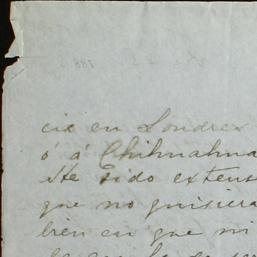 cia en Londres
ó á Chihuahua
He sido extens
que no quisiera
bien en que mi